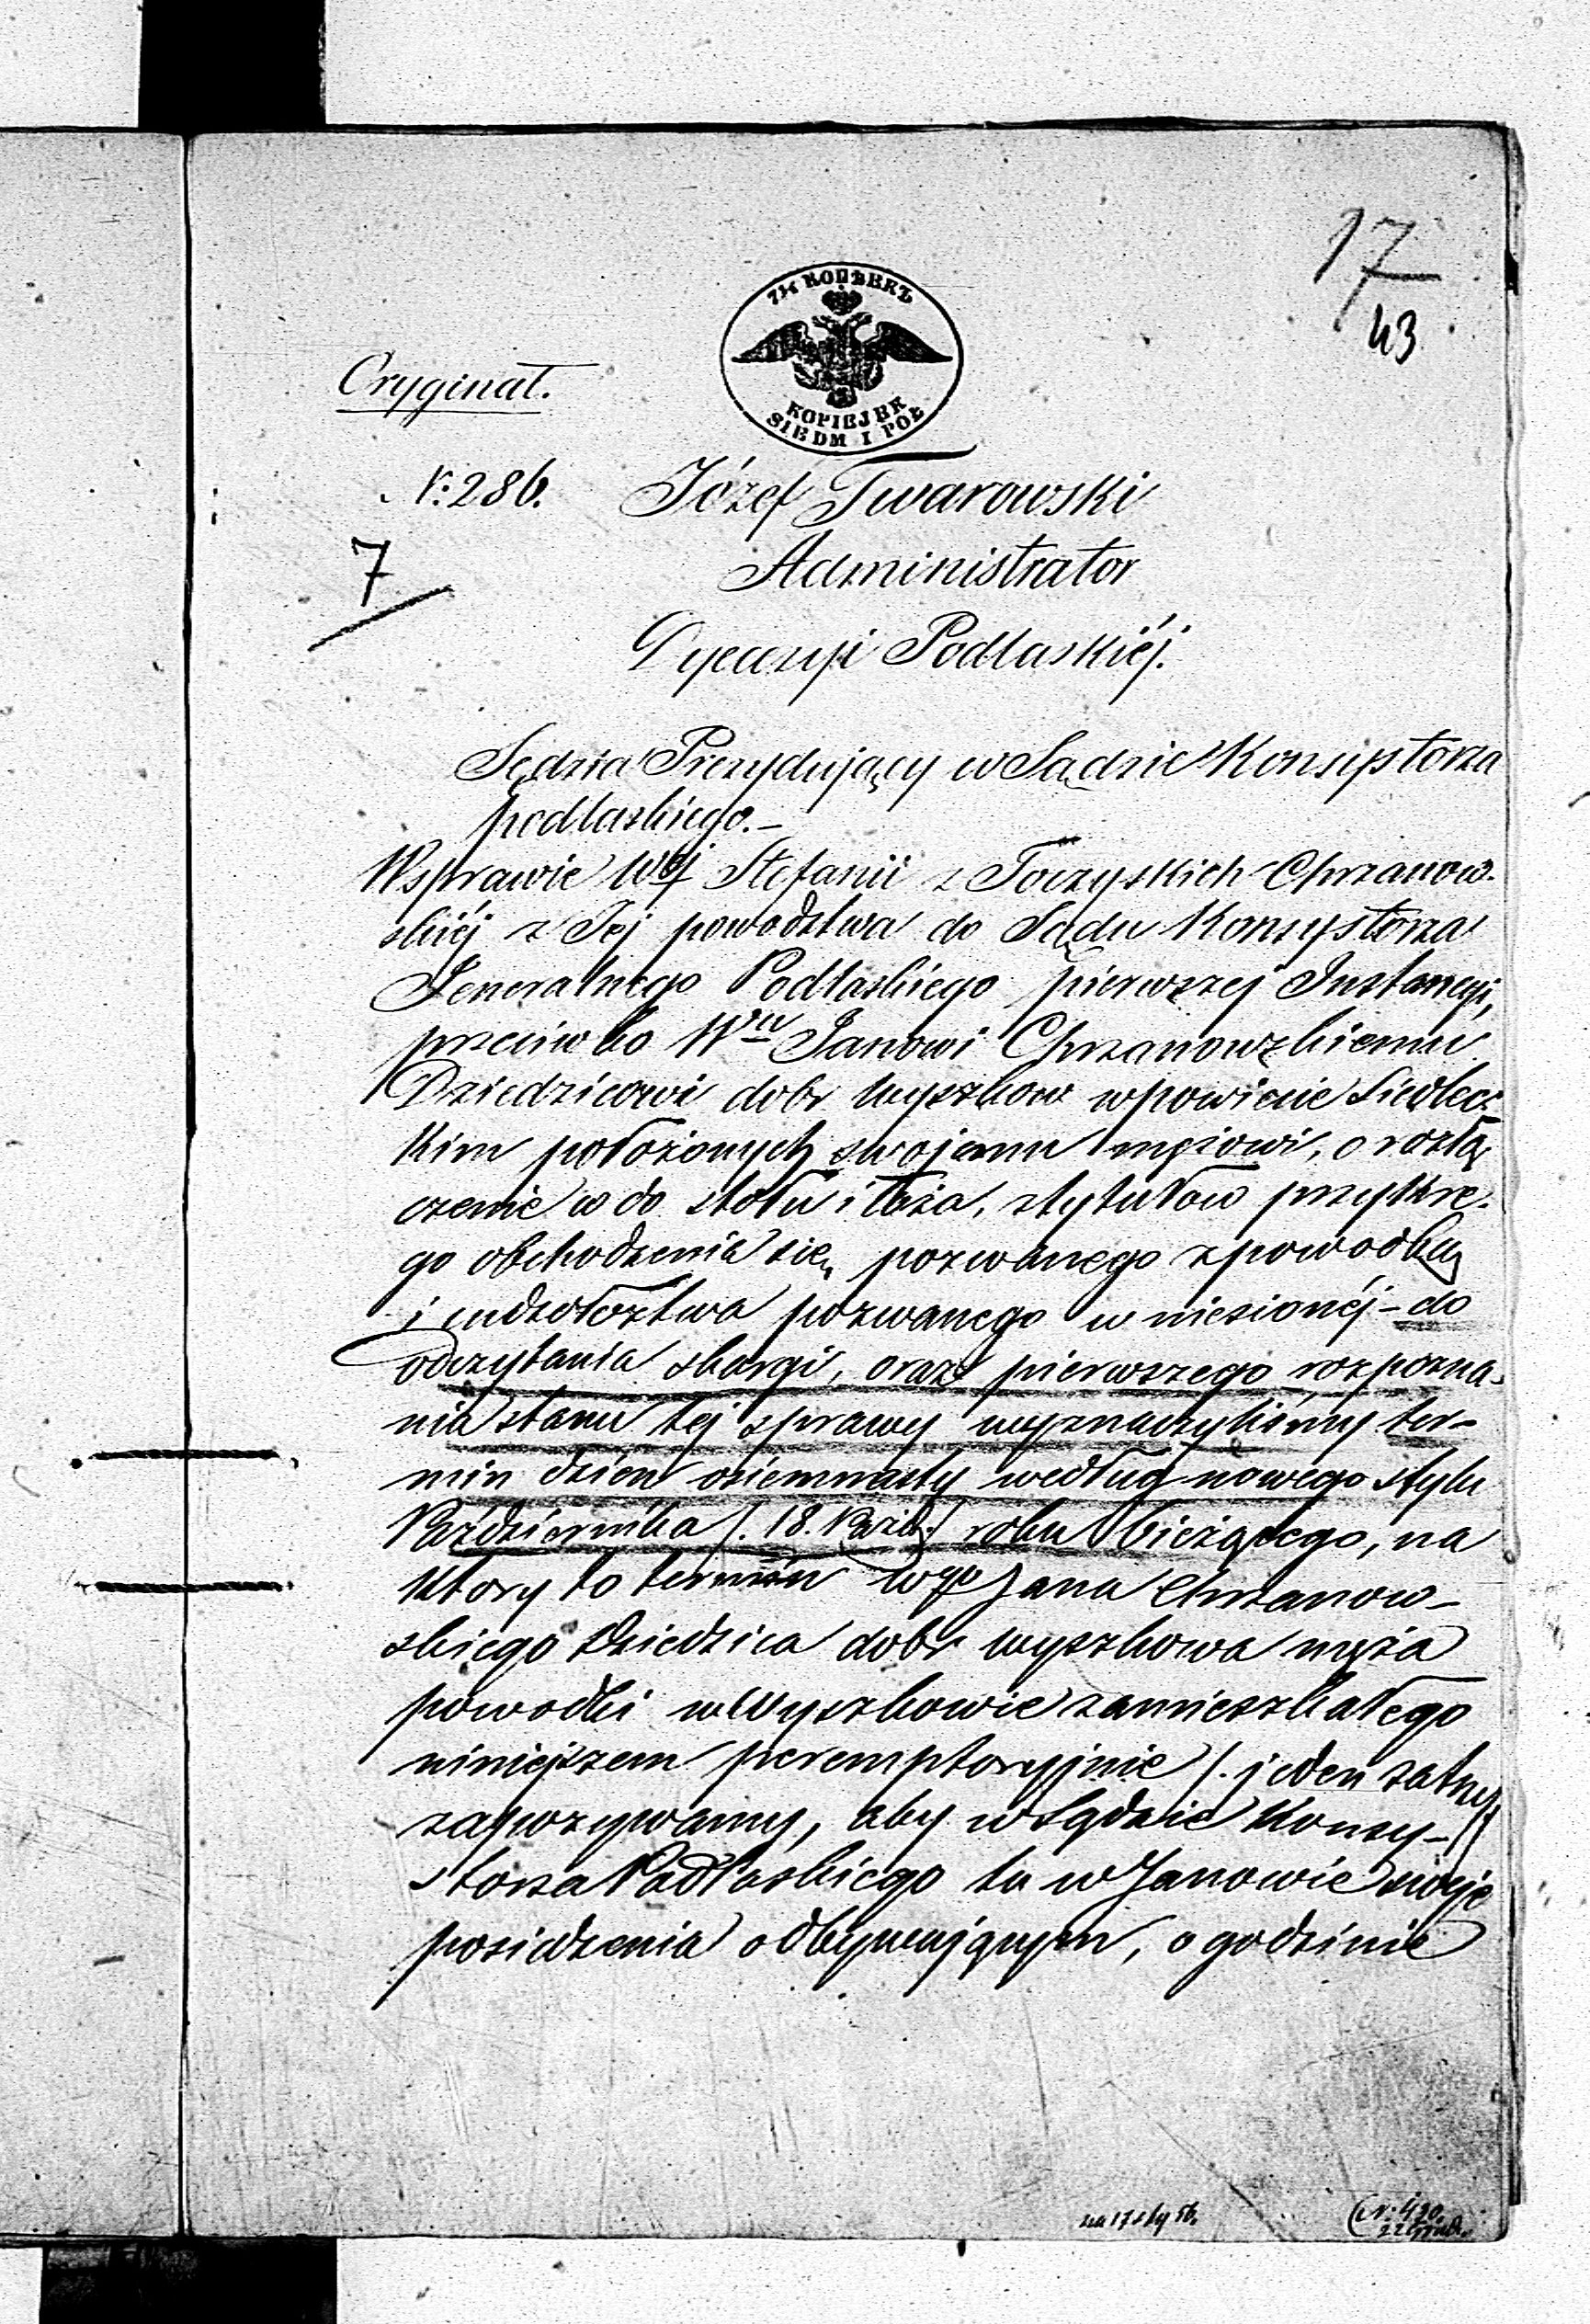 17
43
7½ КОПѢЕКЪ
KOPIEJEK
SIEDM I PÓŁ
Oryginał.
N: 286.
7
Józef Twarowski
Administrator
Dyecezyi Podlaskiéj.
Sędzia Prezydujący w Sądzie Konsystorza
podlaskiego.-
W sprawie Wej Stefanii z Toczyskich Chrzanow-
skiéj z Jej powodztwa do Sądu Konsystorza
Jeneralnego Podlaskiego pierwszej Instancyi,
przeciwko Wmu Janowi Chrzanowskiemu
Dziedzicowi dobr Wyszkow w powiecie Siedlec-
kim położonych swojemu mężowi, o rozłą
czenie co do stołu i łoża, z tytułów przykre-
go obchodzenia się pozwanego z powodką
i cudzołoztwa pozwanego wniesionéj - do
odczytania skargi, oraz pierwszego rozpozna-
nia stanu tej sprawy wyznaczyliśmy ter-
min dzień osiemnasty według nowego stylu
Października /. 18. Paźd./ roku bieżącego, na
który to termin Wgo Jana Chrzanow-
skiego Dziedzica dobr Wyszkowa męża
powodki w Wyszkowie zamieszkałego
niniejszem peremptoryjnie /. jeden za trzy/
zapozywamy, aby w Sądzie Konsy-
storza Podlaskiego tu w Janowie swoje
posiedzenia odbywającym, o godzinie
na 17 sty 56.
N. 430.
22 Grud.